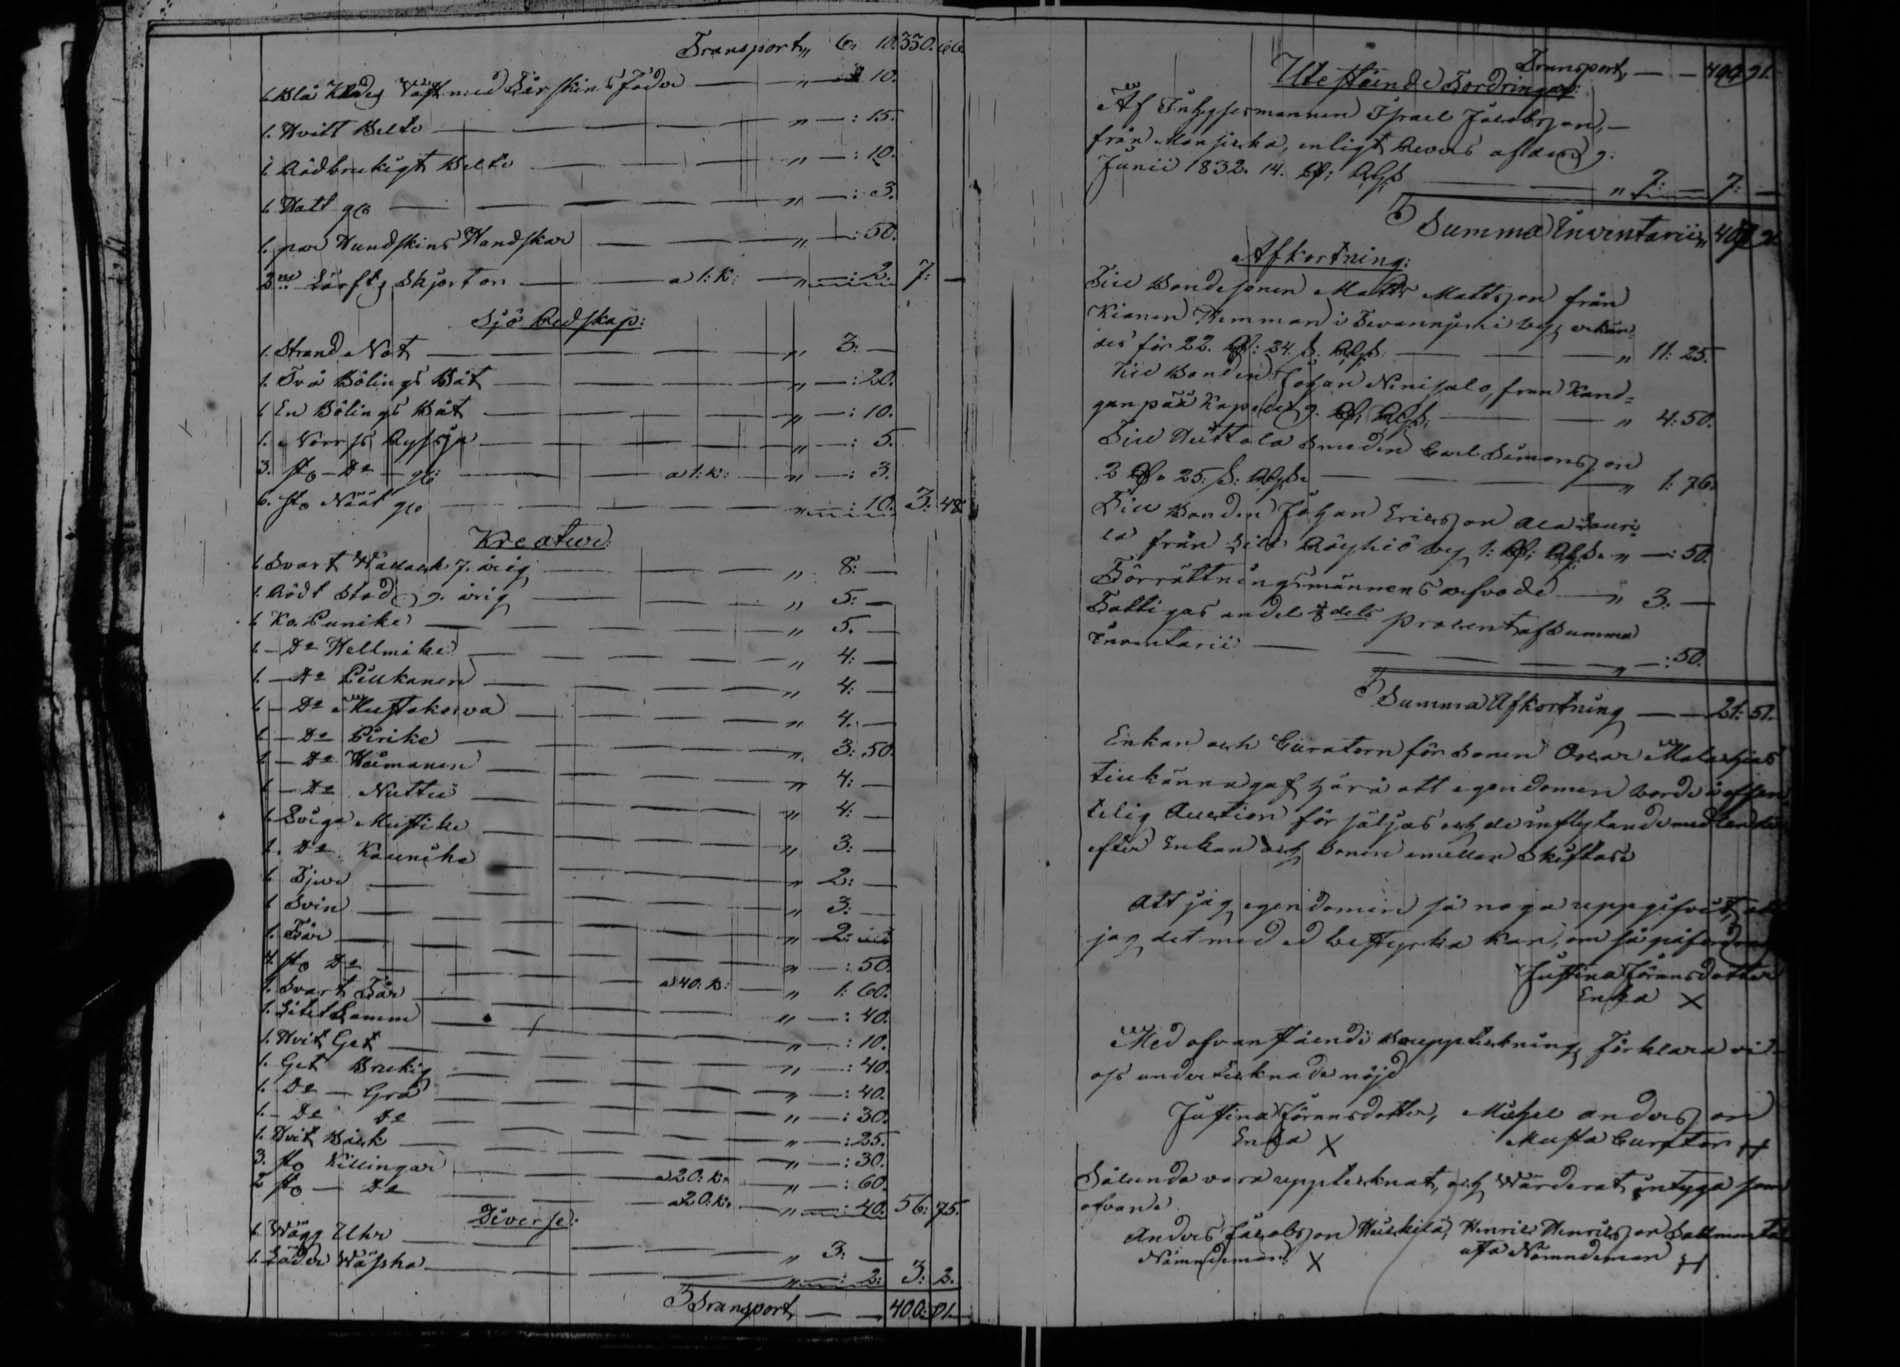 Transport „ 6: 10 330:
1. Blå Klädes Väst med Fårskins foder — „ — : 10.
1. Hvitt Belte — „ — : 15.
1. Rödbrukigt Belte — „ — : 10.
1. Hatt — „ — : 3.
1. par Hundskins Handskar — „ — : 50.
2ne Lärfts Skjorton — a 1: K: „ — : 2. 7: —
Sjö Redskap:
1. Strand Not — „ 3: —
1. Två Bölings Båt — „ — : 20.
1. En Bölings Båt — „ — : 10.
1. Norrs Ryssja — „ — : 5.
3. st. — Do — a 1: K: „ — : 3.
6. st. Näät — „ — : 10. 3: 48.
Kreatur:
1. Svart Wallack 7. årig — „ 8: —
1. Rödt Stod 9. årig — „ 5: —
1. Ko Punike — „ 5. —
1. — Do Hellmike — „ 4: —
1. — Do — „ 4: —
1. — Do Mustakorva — „ 4. —
1. — Do Pirike — „ 3: 50.
1. — Do Heimanen — „ 4: —
1. — Do Nuttu — „ 4: —
1. Qviga Mustike — „ 3: —
1. Do Kaunike — „ 2: —
1. Tjur — „ 3: —
1. Svin — „ 2:
1. Får — „ — : 50.
4 st. Do — a 40. K: „ 1: 60.
1. Svart Får — „ — : 40.
1. Litet Lamm — „ — : 10.
1. Hvit Get — „ — : 40.
1. Get Brukig — „ — : 40.
1. Do — Grå — „ — : 30.
1. — Do Do — „ — : 25.
1. Hvit Båck — „ — : 30.
3. st. Killingar — a 20: K: „ — : 60.
2 st. — Do — a 20: K: „ — : 40. 56: 75.
Diverse:
1. Wägg Uhr — „ 3: —
1. Läder Wäska — „ — : 2: 3: 2.
Transport — 400: 91.
Transport, — 400 91.
Uteslående Fordringar:
Af Inhysesmannen Israel Jacobsson, —
från enligt Revers af den 9.
Junii 1832. 14. — „ 7: — 7: —
Summa Inventarii „ 407 91
Afkortning:
Till Bondesonen Matts Mattsson från
Kianen Hemman i Tevannjemi by, erkän-
des för 22. : 24. — „ 11: 25.
Till Bonden Johan Nenisalo, från Kand-
gan på 9. — „ 4: 50.
Till Huttala Smeden Carl Simonsson
2 25. — „ 1: 76.
Till Bonden Johan Ericsson
från by 1: „ — : 50.
Förrättningsmännens arfvode — „ 3. —
Fattigas andel dels procent af Summa
Inventarii — „ — : 50.
Summa Afkortning — 21: 51.
Enkan och Curatorn för Sonen Oscar
tillkännagaf härå att egendomen borde i offen-
telig Auction försäljas och de inflytande
efter Enkan och Sonen emellan Skiftas
Att jag egendomen så noga uppgifvit, att
jag det med ed bestyrka kan, om så påfordras
Justina Göransdotter
Enka X
Med ofvanstående Bouppteckning Förklara vi
oss undertecknade nöjd
Justina Göransdotter, Michel andersson
Enka X Musta Curator
Sålunda vara upptecknat, och Wärderat intyga som
ofvan
Anders Jacobsson Henric Henricsson
Nämndeman X Nämndeman